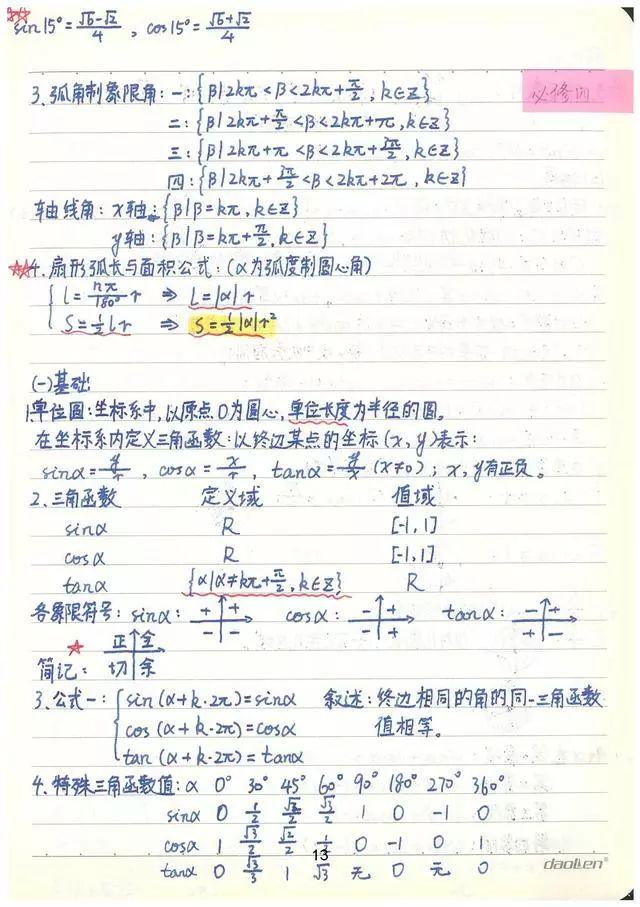 sin15°=(√6-√2)/4 , cos15°=(√6+√2)/4
必修四
3.弧度制象限角:一:{β|2kπ<β<2kπ+π/2,k∈Z}
二:{β|2kπ+π/2<β<2kπ+π,k∈Z}
三:{β|2kπ+π<β<2kπ+3π/2,k∈Z}
四:{β|2kπ+3π/2<β<2kπ+2π,k∈Z}
轴线角:x轴:{β|β=kπ,k∈Z}
y轴:{β|β=kπ+π/2,k∈Z}
4.扇形弧长与面积公式:(α为弧度制圆心角)
l=nπ/180° r ⇒ l=|α|r
S=1/2 lr ⇒ S=1/2|α|r²
(一)基础:
1.单位圆:坐标系中,以原点O为圆心,单位长度为半径的圆。
在坐标系内定义三角函数:以终边某点的坐标(x,y)表示:
sinα=y/r , cosα=x/r , tanα=y/x (x≠0);x,y有正负。
2.三角函数 定义域 值域
sinα R [-1,1]
cosα R [-1,1]
tanα {α|α≠kπ+π/2,k∈Z} R
各象限符号:sinα: + + - - cosα: - + - + tanα: - + + -
正 全
简记: 切 余
3.公式一:sin(α+k·2π)=sinα 叙述:终边相同的角的同一三角函数
cos(α+k·2π)=cosα 值相等。
tan(α+k·2π)=tanα
4.特殊三角函数值:α 0° 30° 45° 60° 90° 180° 270° 360°
sinα 0 1/2 √2/2 √3/2 1 0 -1 0
cosα 1 √3/2 √2/2 1/2 0 -1 0 1
13
tanα 0 √3/3 1 √3 无 0 无 0
daoLen